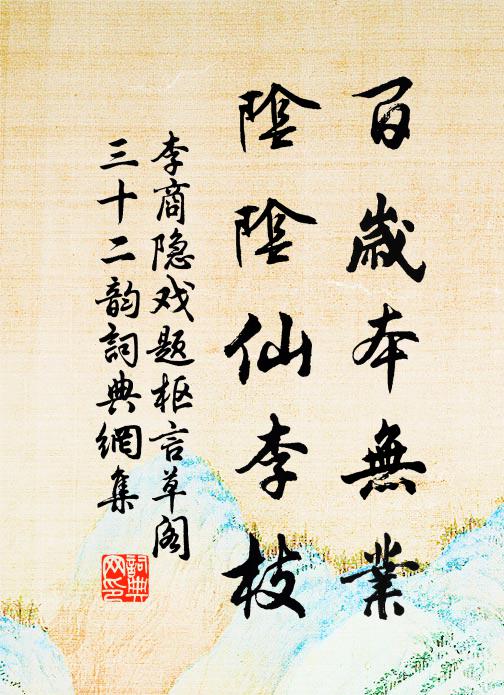 百歲本無業
陰陰仙李枝
李商隐戏题枢言草阁
三十二韵詞典網集
詞典
网印